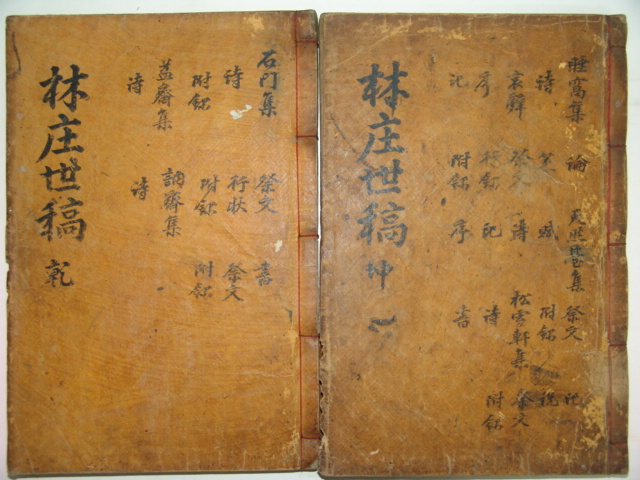 石門集 祭文 書
詩 行狀 祭文
附錄 附錄 附錄
益齋集 訥齋集
詩 詩
林庄世稿 乾
睡窩集 論 集 祭文 記
詩 賦 附錄 說
哀辭 祭文 詩 松雪軒集 祭文
序 行錄 記 詩 附錄
記 附錄 序 書
林庄世稿 坤